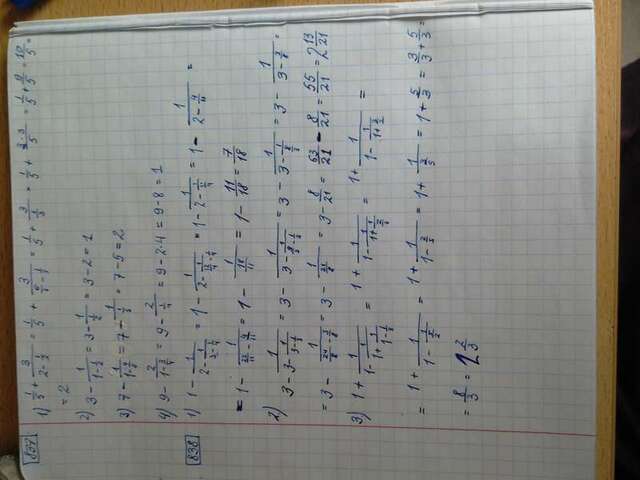 837
1) 1/5 + 3/(2 - 1/2) = 1/5 + 3/(4/2 - 1/2) = 1/5 + 3/(3/2) = 1/5 + 3·3/5 = 1/5 + 9/5 = 10/5 =
= 2
2) 3 - 1/(1 - 1/2) = 3 - 1/(1/2) = 3 - 2 = 1
3) 7 - 1/(1 - 4/5) = 7 - 1/(1/5) = 7 - 5 = 2
4) 9 - 2/(1 - 3/4) = 9 - 2/(1/4) = 9 - 2·4 = 9 - 8 = 1
838
1) 1 - 1/(2 - 1/(3 - 1/4)) = 1 - 1/(2 - 1/(12/4 - 1/4)) = 1 - 1/(2 - 1/(11/4)) = 1 - 1/(2 - 4/11) =
= 1 - 1/(22/11 - 4/11) = 1 - 1/(18/11) = 1 - 11/18 = 7/18
2) 3 - 1/(3 - 1/(3 - 1/3)) = 3 - 1/(3 - 1/(9/3 - 1/3)) = 3 - 1/(3 - 1/(8/3)) = 3 - 1/(3 - 3/8) =
= 3 - 1/(24/8 - 3/8) = 3 - 1/(21/8) = 3 - 8/21 = 63/21 - 8/21 = 55/21 = 2 13/21
3) 1 + 1/(1 - 1/(1 + 1/(1 - 1/3))) = 1 + 1/(1 - 1/(1 + 1/(2/3))) = 1 + 1/(1 - 1/(1 + 3/2)) =
= 1 + 1/(1 - 1/(5/2)) = 1 + 1/(1 - 2/5) = 1 + 1/(3/5) = 1 + 5/3 = 3/3 + 5/3 =
= 8/3 = 2 2/3